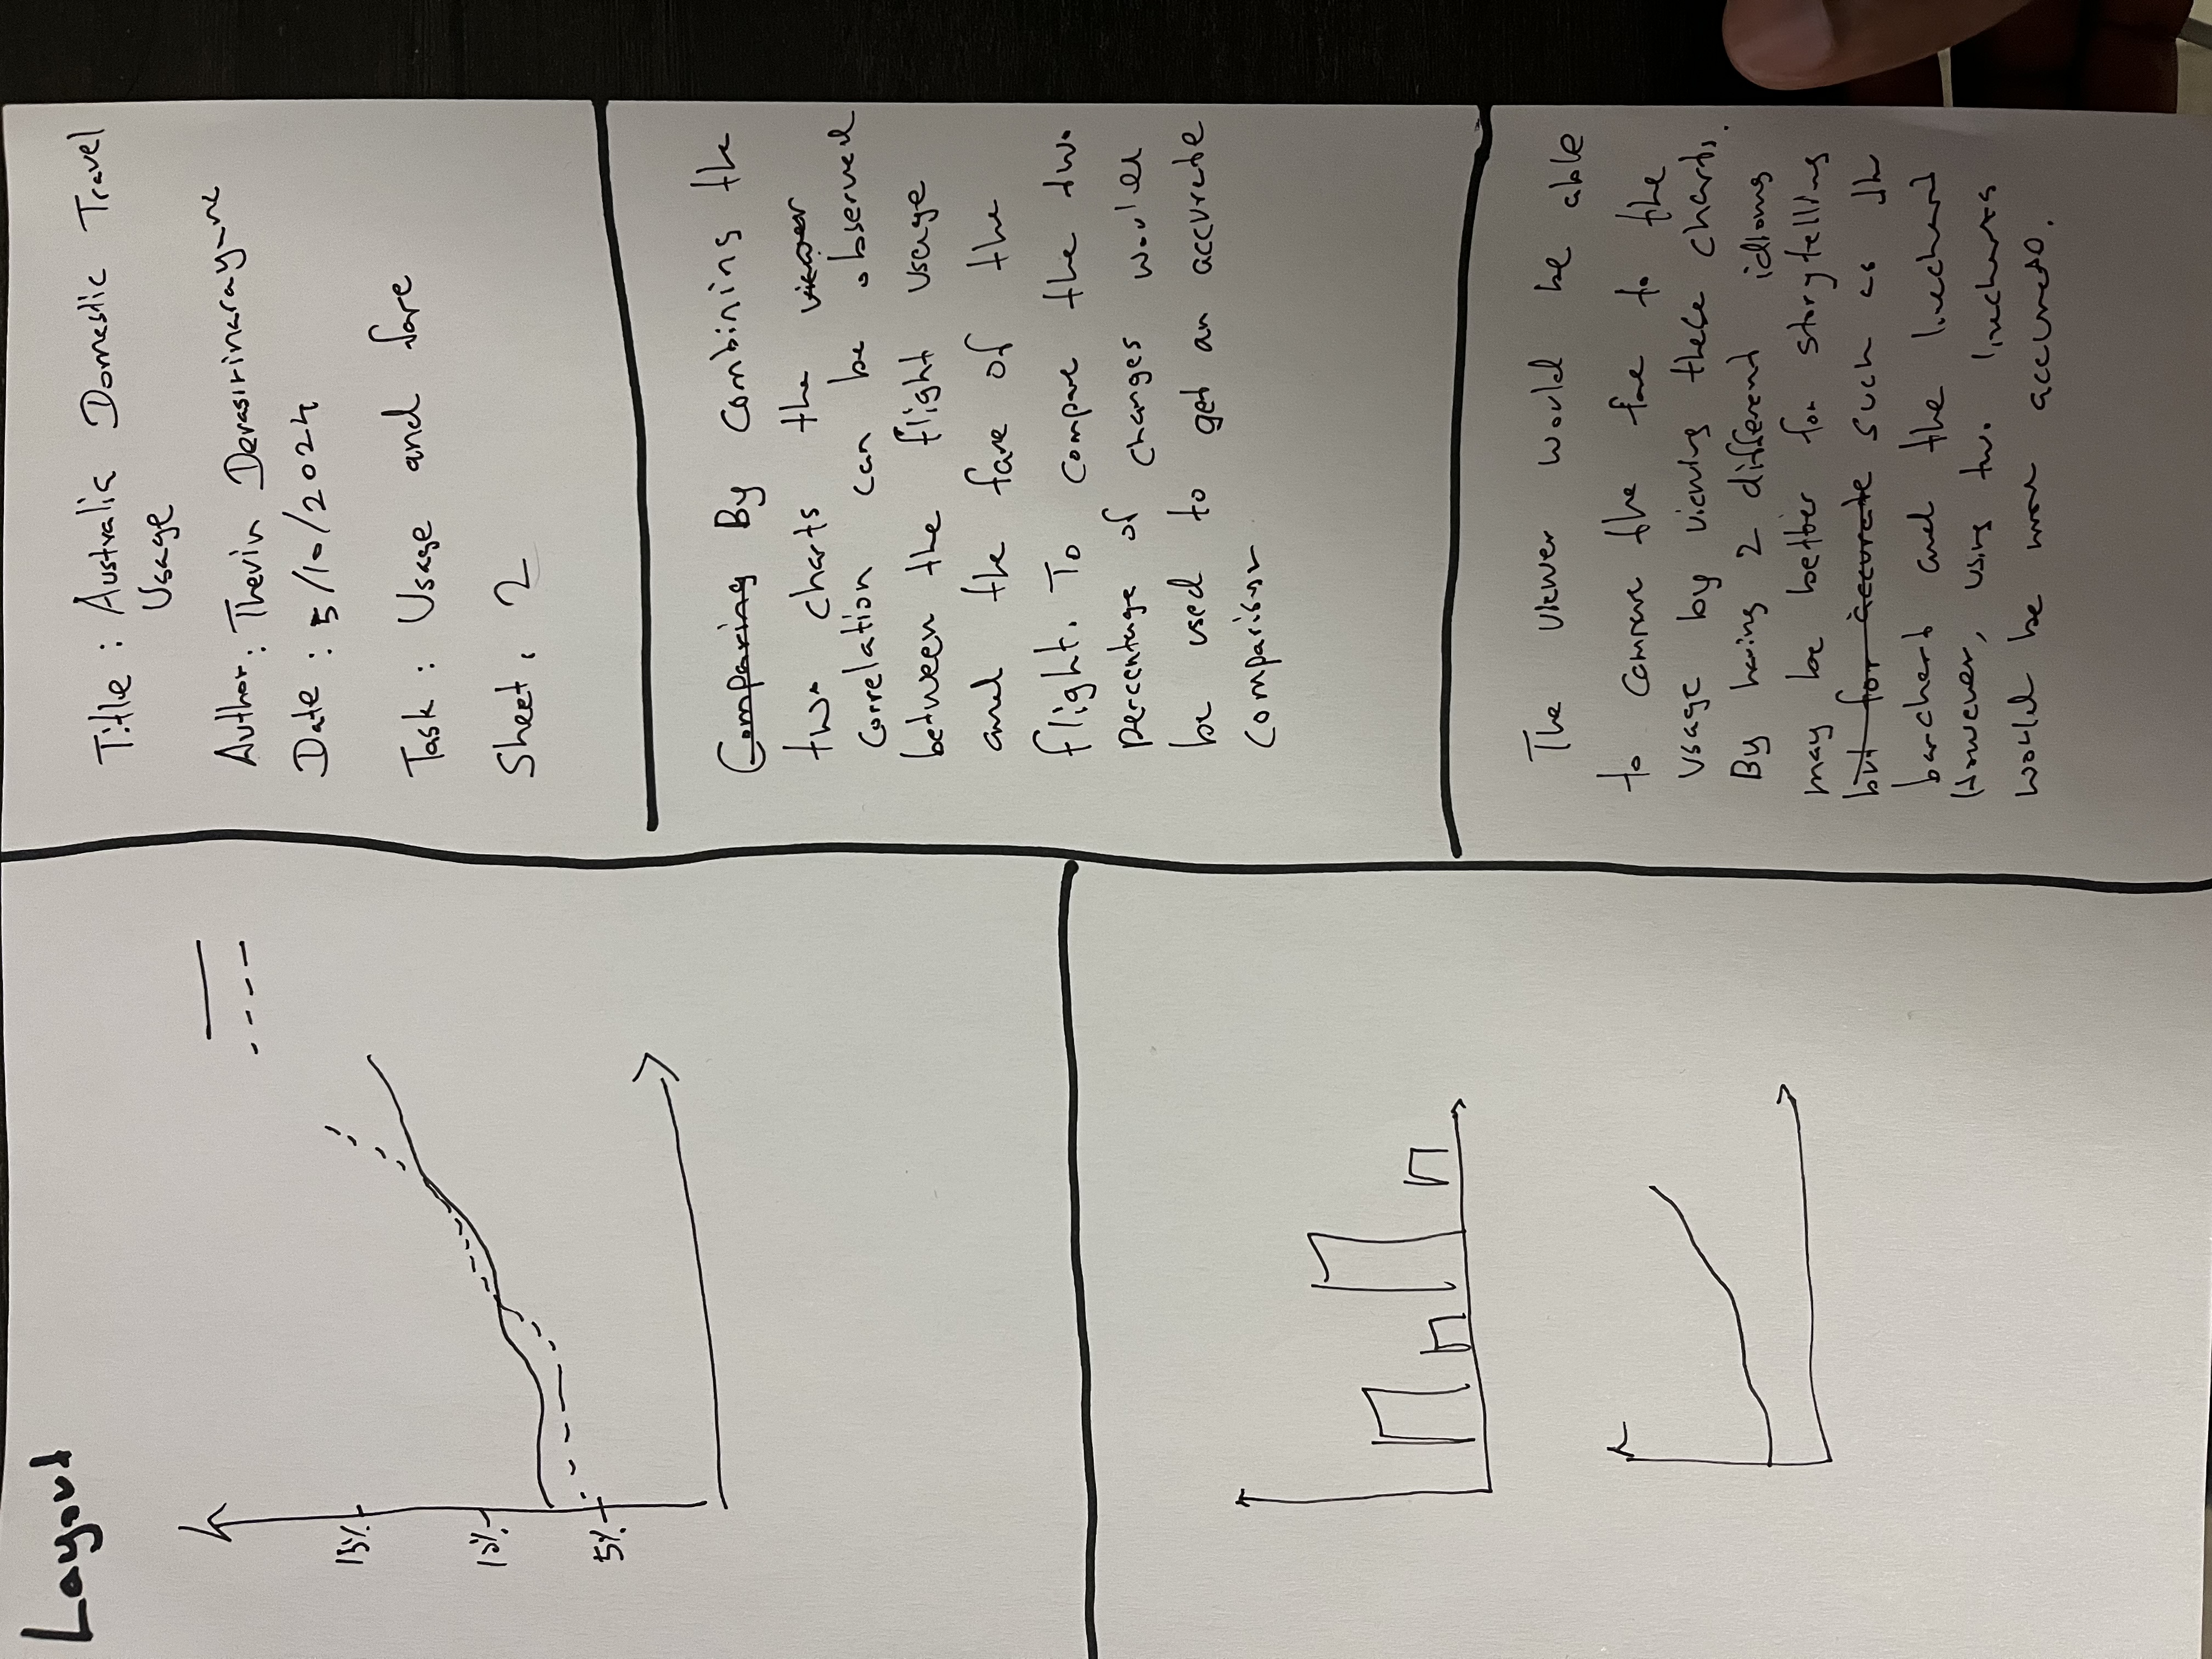 Layout
15%
10%
5%
Title : Australia Domestic Travel
Usage
Author : Thevin
Date : 5/10/2024
Task : Usage and fare
Sheet : 2
Comparing By combining the
two charts the viewer
correlation can be observed
between the flight usage
and the fare of the
flight. To compare the two
percentage of changes would
be used to get an accurate
comparison
The viewer would be able
to compare the fare to the
usage by viewing these charts.
By having 2 different idioms
may be better for storytelling
but for accurate such as the
barchart and the linechart
However, using two linecharts
would be more accurate.